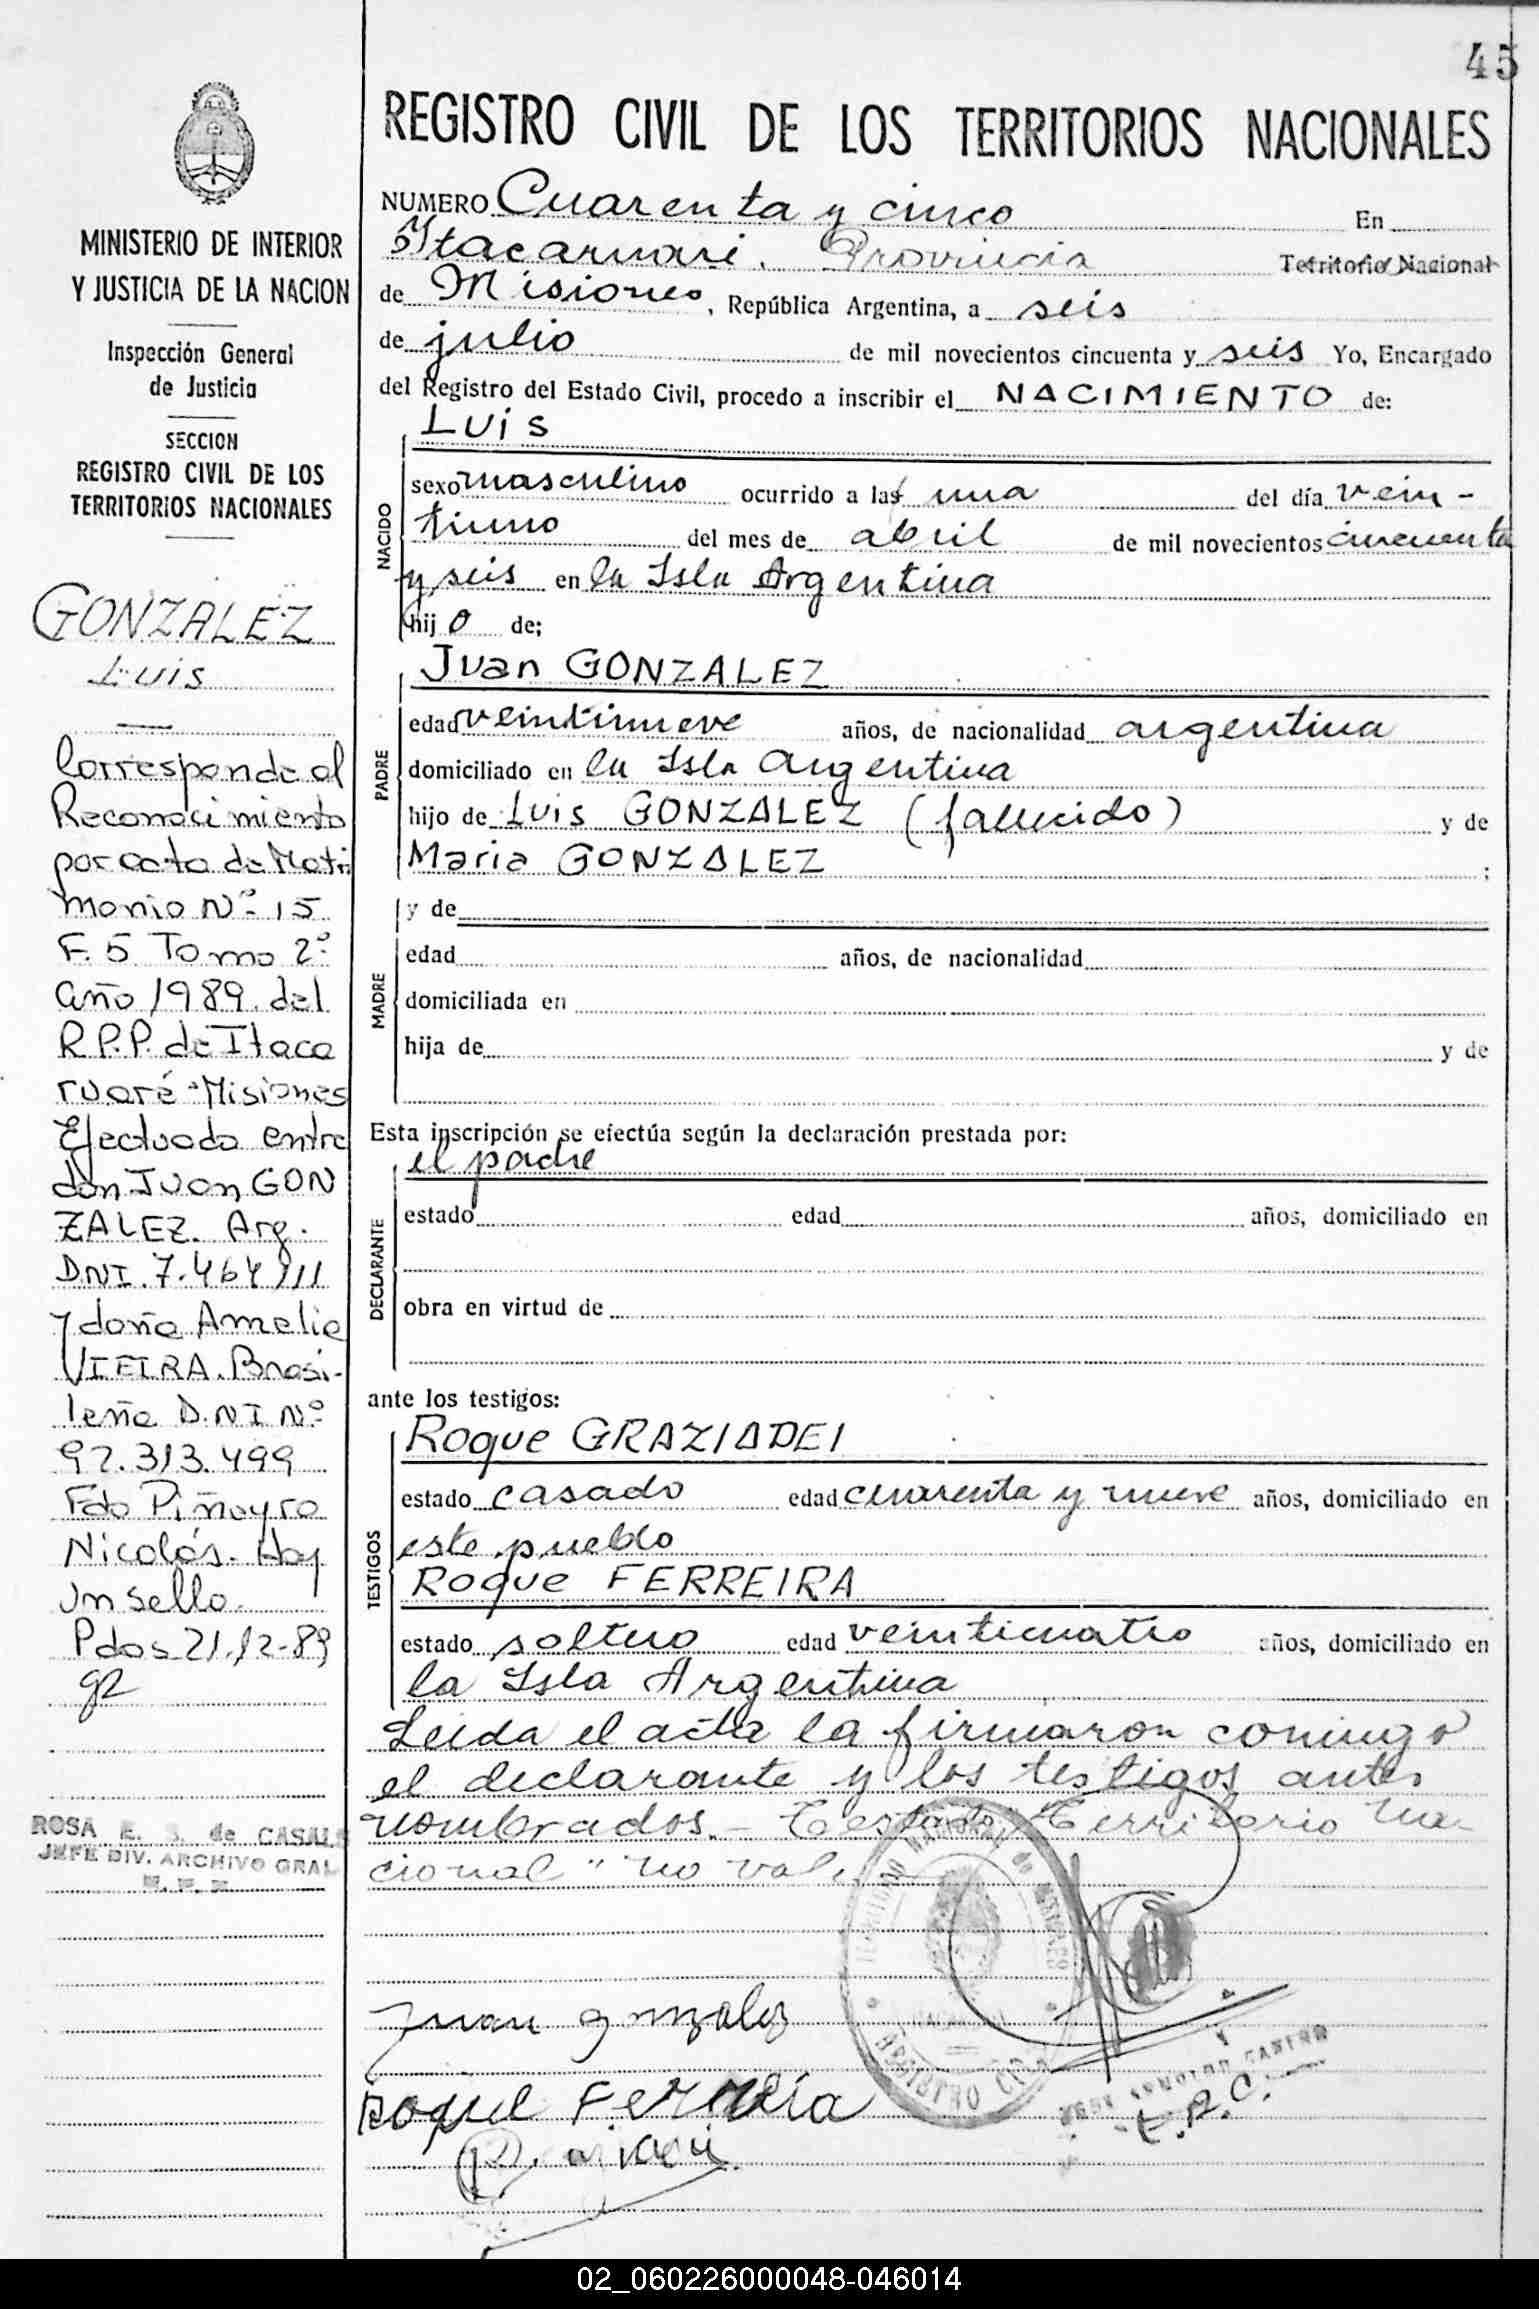 45
REGISTRO CIVIL DE LOS TERRITORIOS NACIONALES
MINISTERIO DE INTERIOR
Y JUSTICIA DE LA NACION
Inspección General
de Justicia
SECCION
REGISTRO CIVIL DE LOS
TERRITORIOS NACIONALES
GONZALEZ
Luis
Corresponde al
Reconocimiento
por acta de Matri
monio Nº 15
F. 5 Tomo 2º
año 1989 del
R.P.P. de Itaca
ruaré - Misiones
Efectuado entre
don Juan GON
ZALEZ. Arg.
DNI. 7.464.111
y doña Amelia
VIEIRA. Brasi-
leña D.N.I Nº
92.313.499
Fdo Piñeyro
Nicolás. Hay
un sello.
Pdas 21.12-89
ROSA E. S. de CASALS
JEFE DIV. ARCHIVO GRAL
NUMERO Cuarenta y cinco En
Itacaruaré. Provincia Territorio Nacional
de Misiones, República Argentina, a seis
de julio de mil novecientos cincuenta y seis Yo, Encargado
del Registro del Estado Civil, procedo a inscribir el NACIMIENTO de:
NACIDO
Luis
sexo masculino ocurrido a las una del día vein-
tiuno del mes de abril de mil novecientos cincuenta
y seis en la Isla Argentina
hijo de;
PADRE
Juan GONZALEZ
edad veintinueve años, de nacionalidad argentina
domiciliado en la Isla Argentina
hijo de Luis GONZALEZ (fallecido) y de
Maria GONZALEZ ;
MADRE
y de
edad años, de nacionalidad
domiciliada en
hija de y de
Esta inscripción se efectúa según la declaración prestada por:
DECLARANTE
el padre
estado edad años, domiciliado en
obra en virtud de
ante los testigos:
TESTIGOS
Roque GRAZIADEI
estado casado edad cuarenta y nueve años, domiciliado en
este pueblo
Roque FERREIRA
estado soltero edad veinticuatro años, domiciliado en
la Isla Argentina
Leida el acta la firmaron conmigo
el declarante y los testigos antes
nombrados. - Testado "Territorio Na-
cional" no vale
TERRITORIO NACIONAL DE MISIONES
REGISTRO CIVIL
Juan gonzalez
Roque Ferreira
02_060226000048-046014